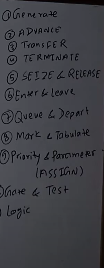 ① Generate
② ADVANCE
③ TRANSFER
④ TERMINATE
⑤ SEIZE & RELEASE
⑥ Enter & leave
⑦ Queue & Depart
⑧ Mark & Tabulate
⑨ Priority &
(ASSIGN)
Gate & Test
Logic